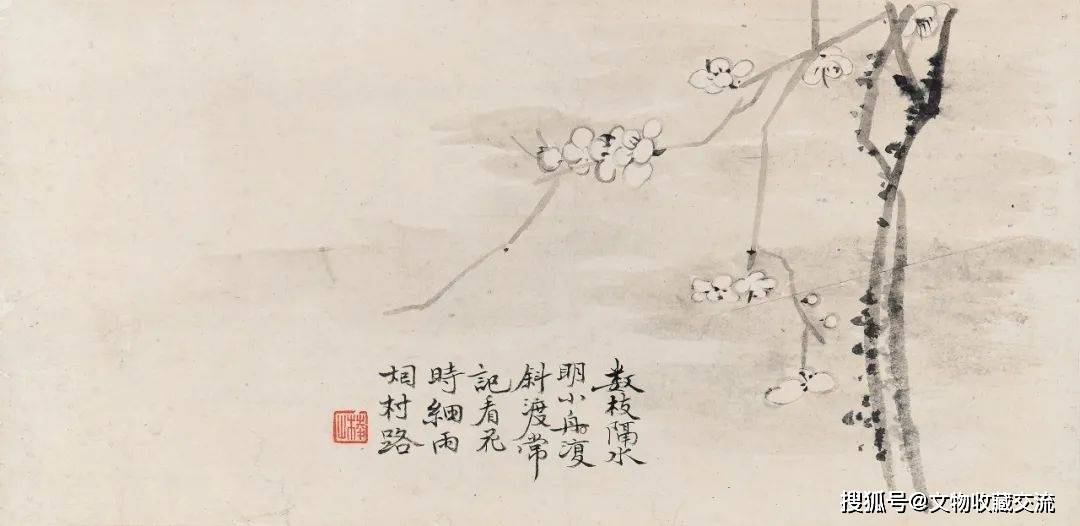 数枝隔水
明小舟復
斜渡常
記看花
時細雨
烟村路
搜狐号@文物收藏交流